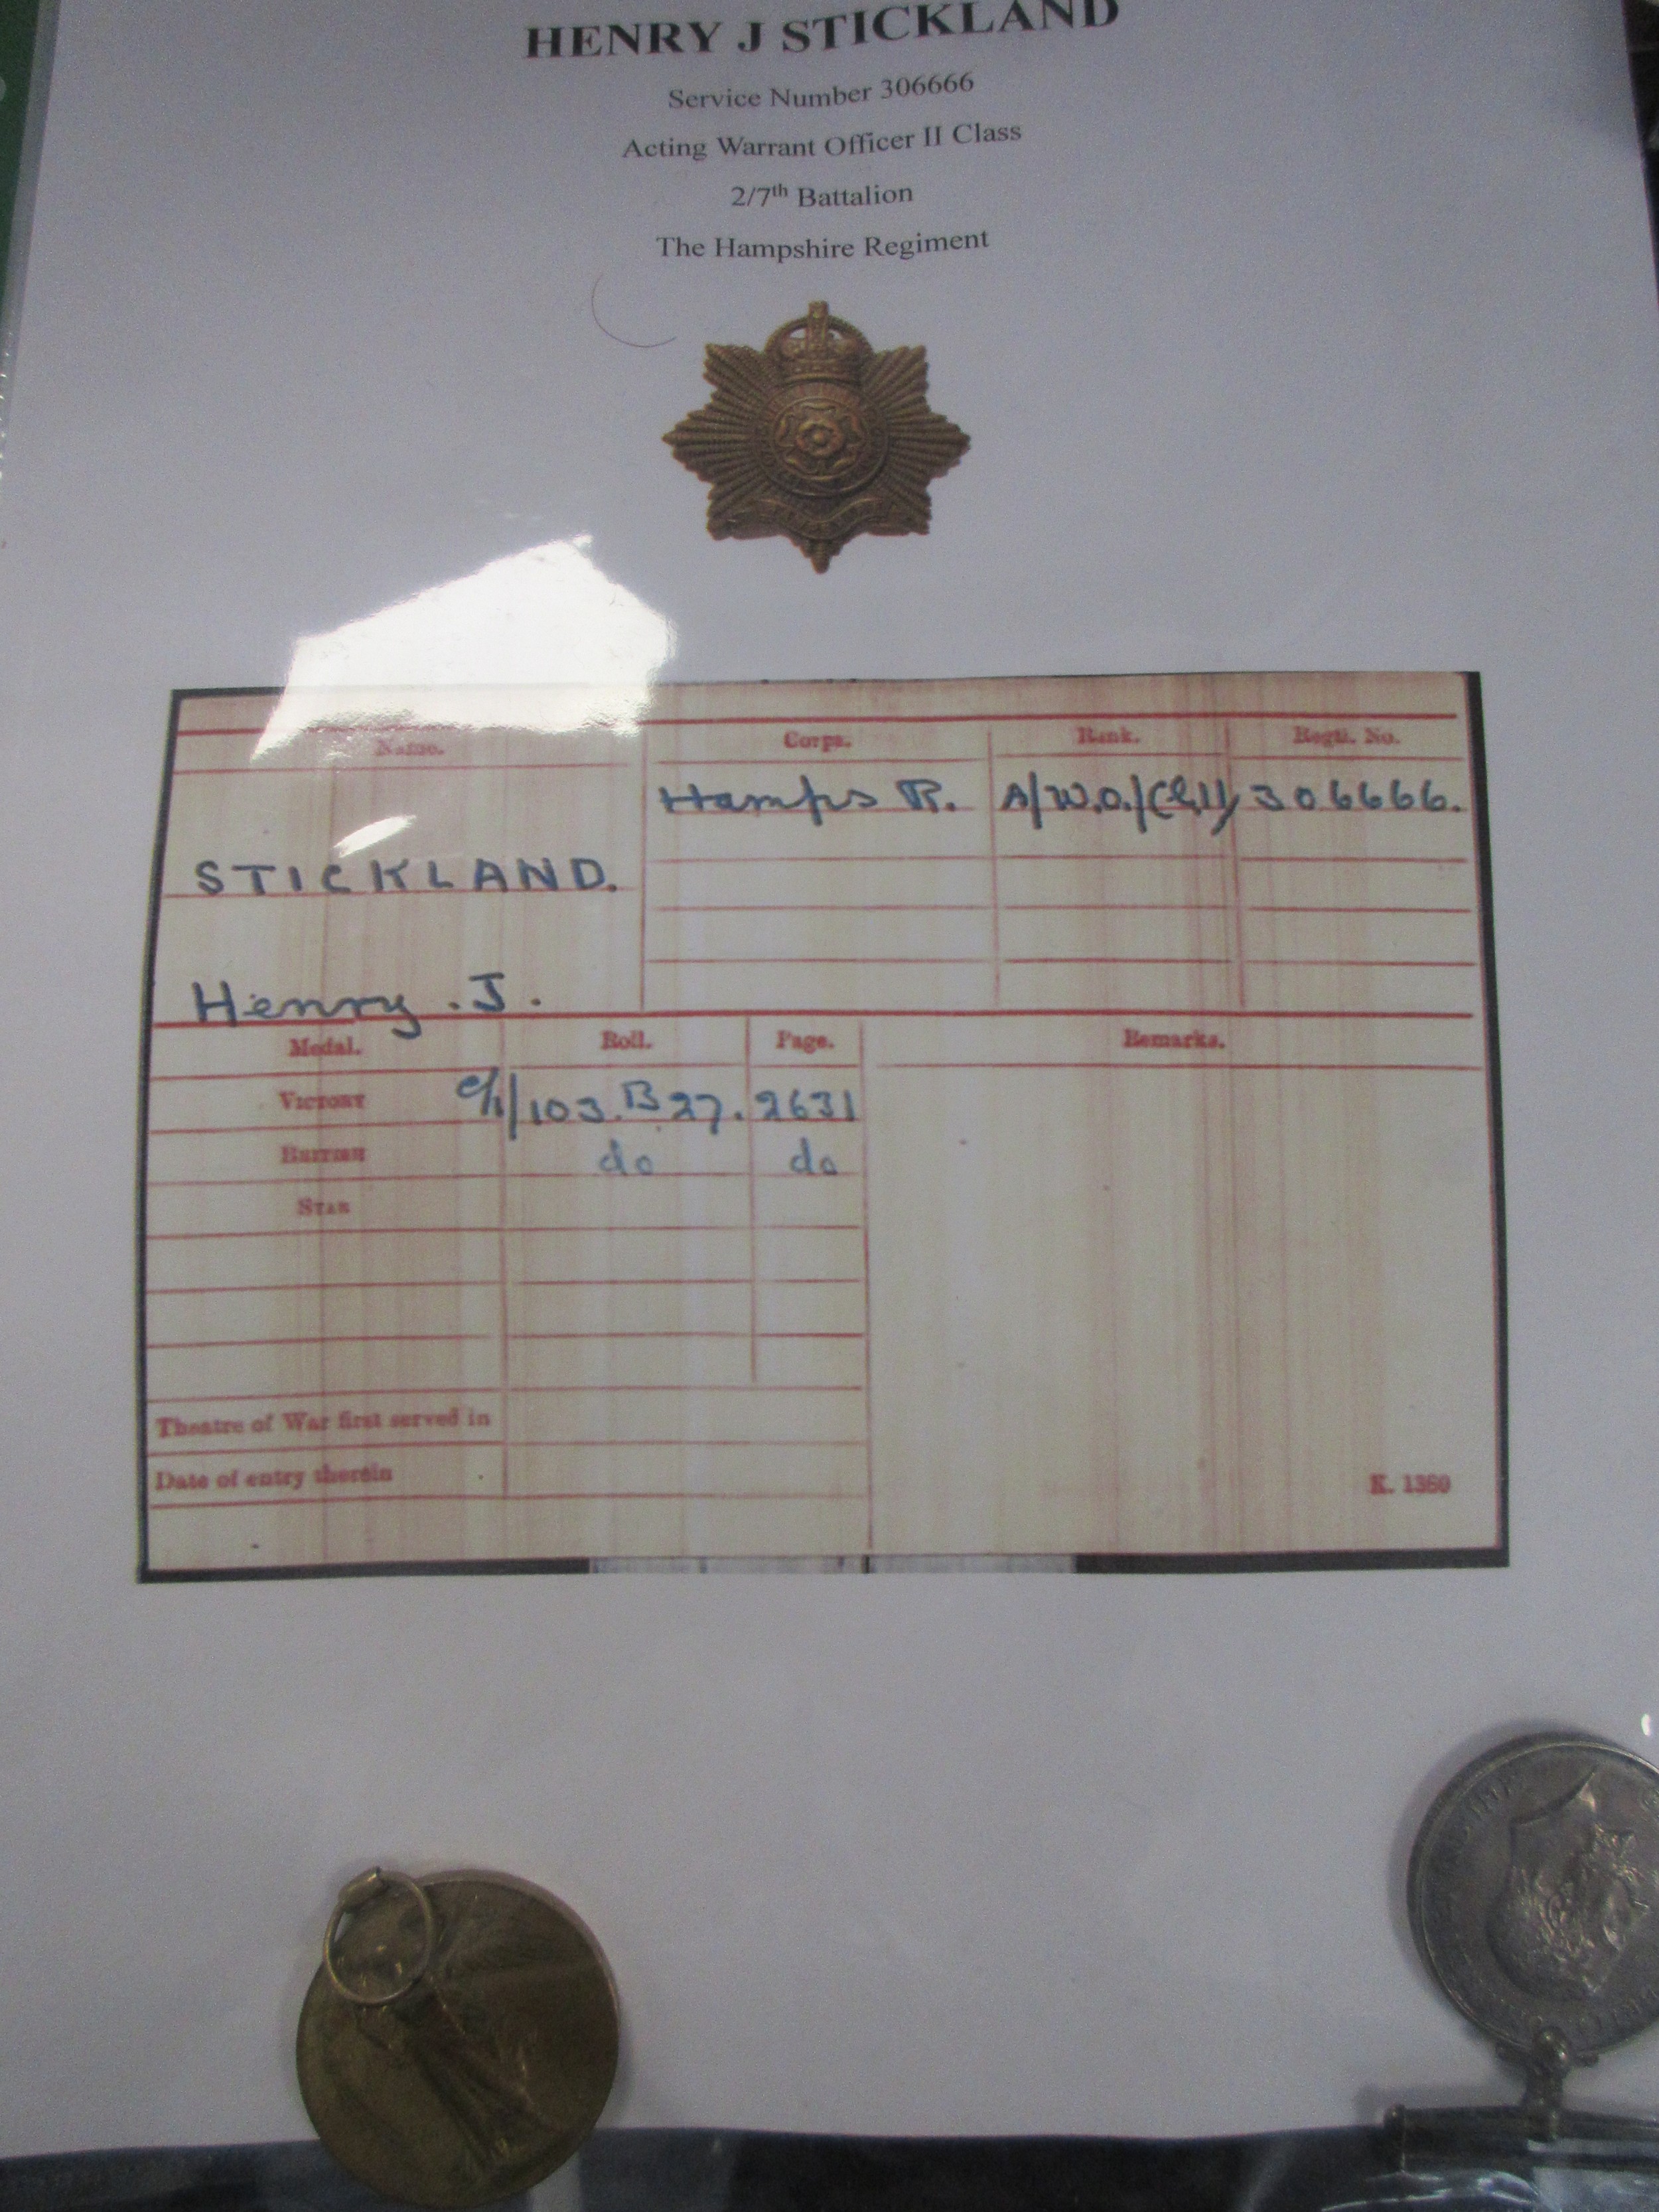 HENRY J STICKLAND
Service Number 306666
Acting Warrant Officer II Class
2/7th Battalion
The Hampshire Regiment
Name. Corps. Rank. Regtl. No.
Hamps R. A/W.O./(Cl.II) 306666.
STICKLAND.
Henry. J.
Medal. Roll. Page. Remarks.
VICTORY 103.B 27. 2631
BRITISH do do
STAR
Theatre of War first served in
Date of entry therein
K. 1380